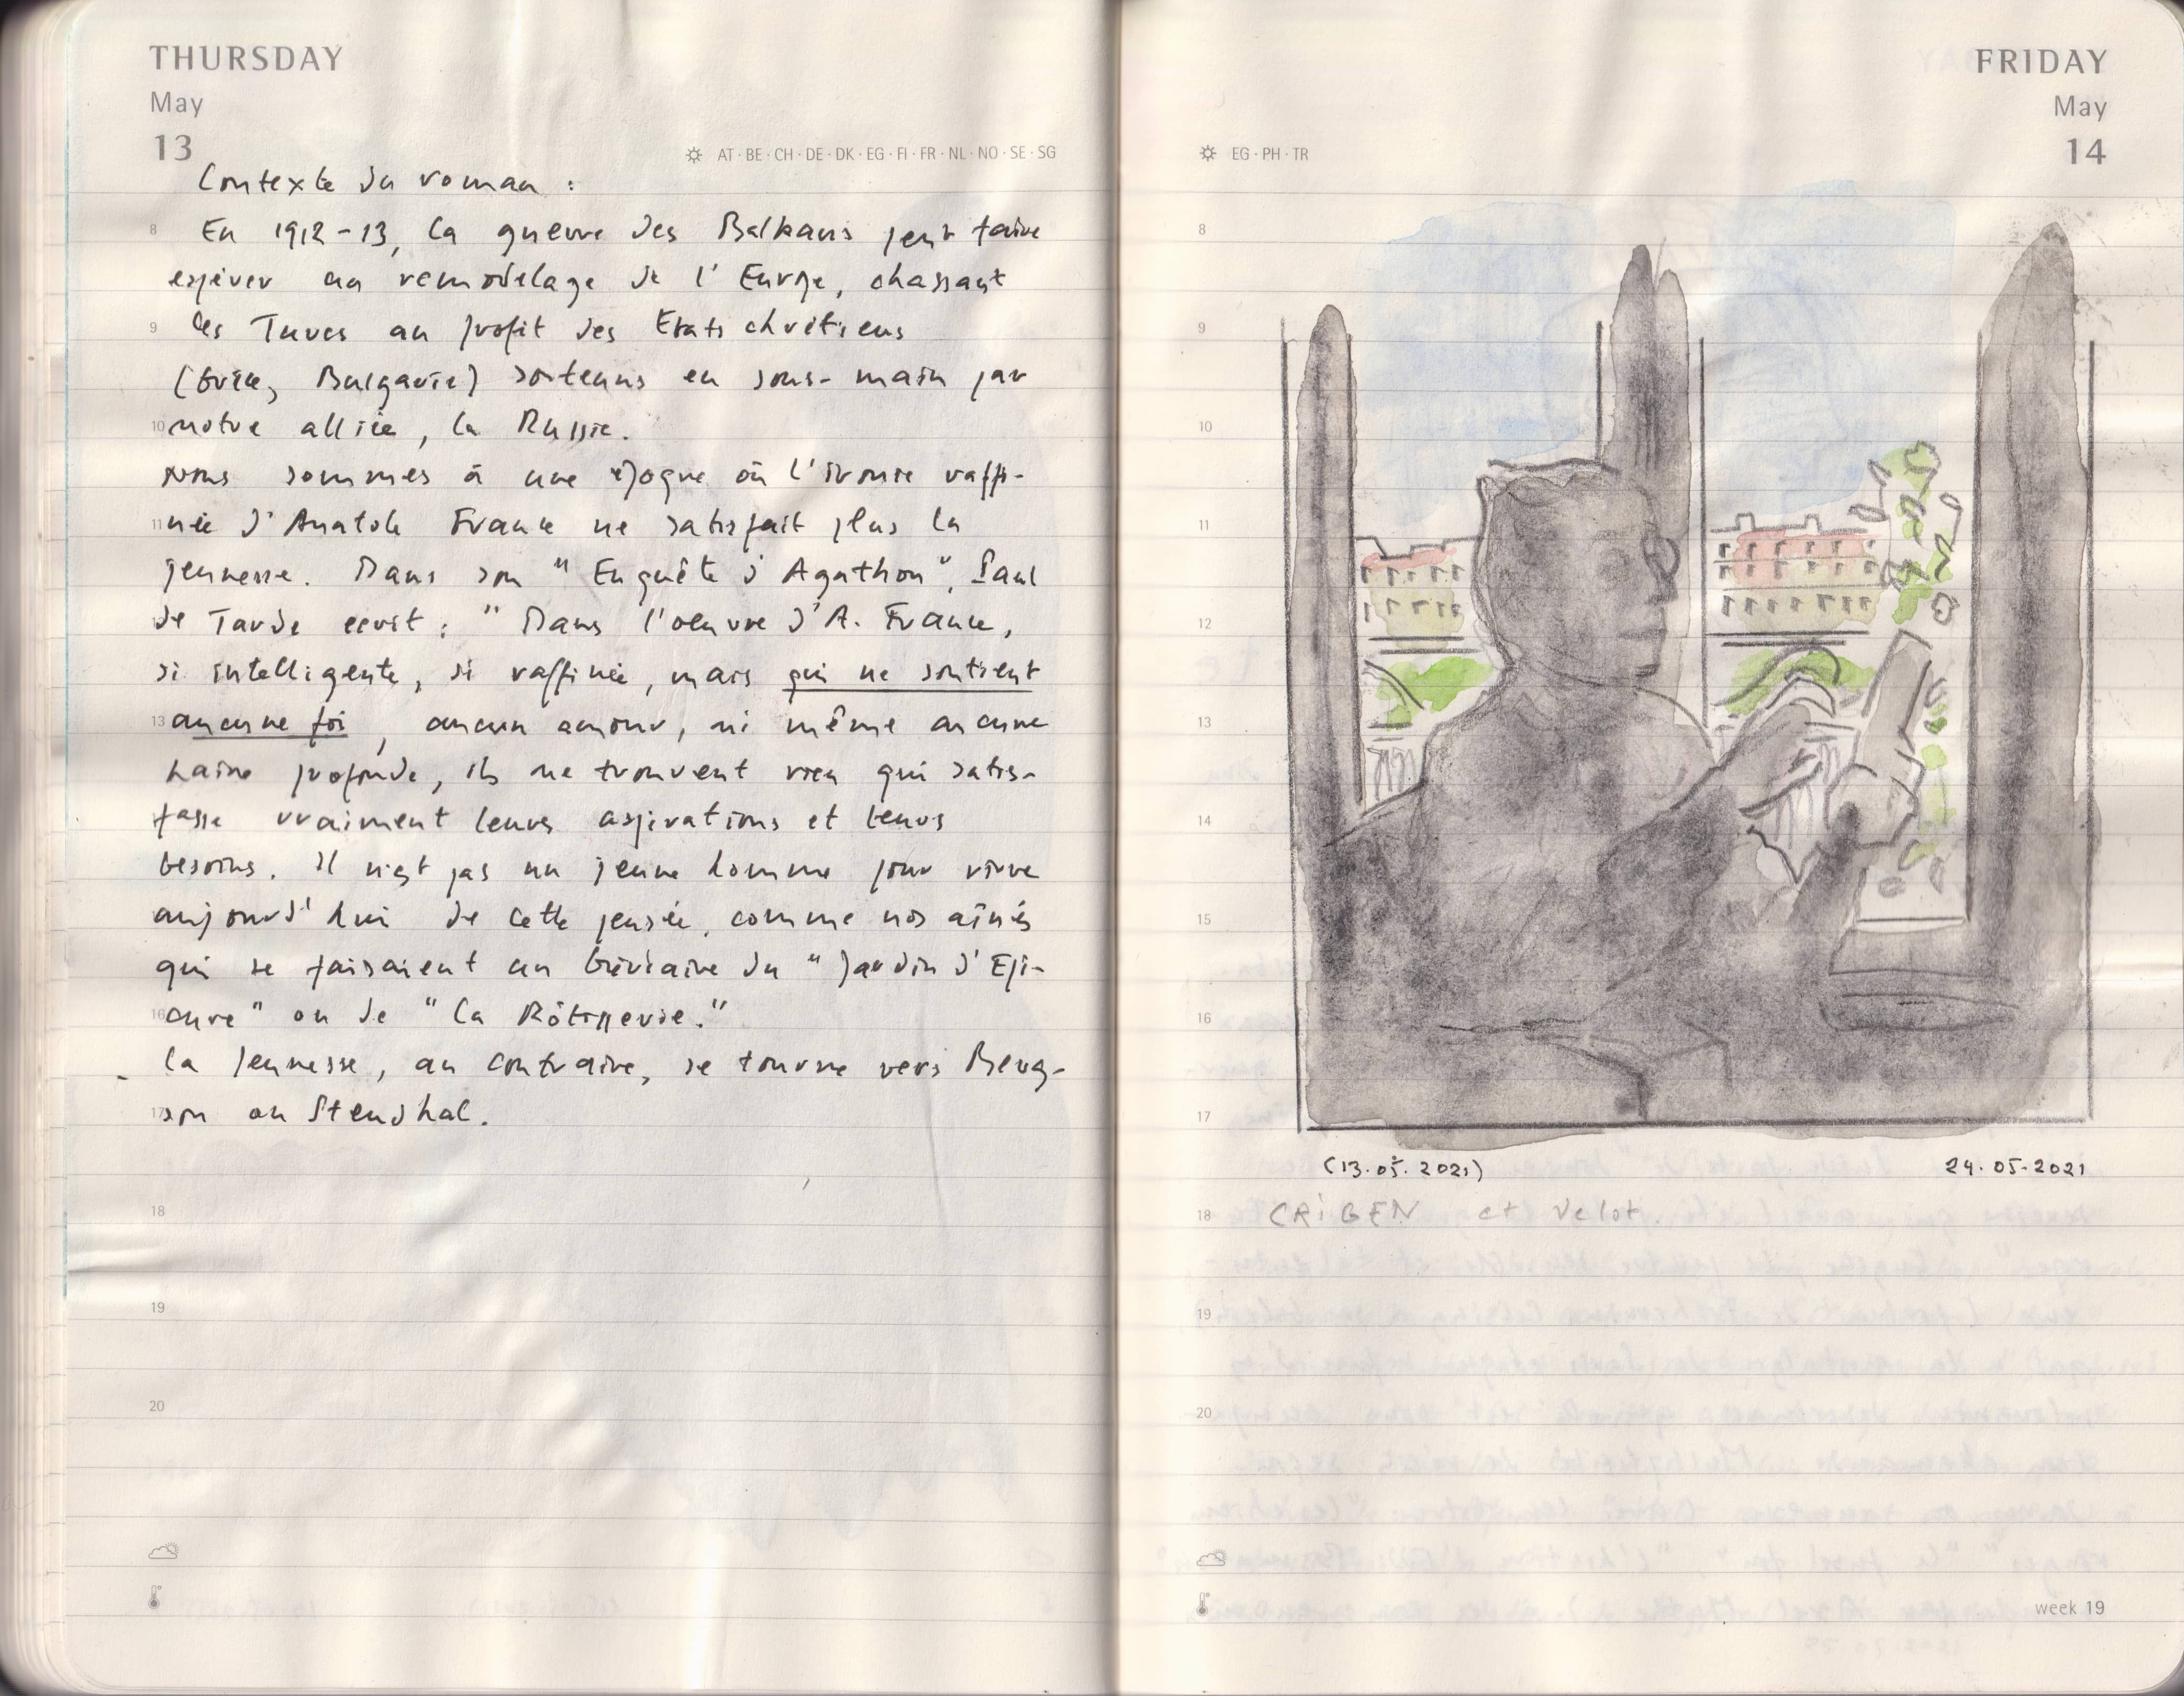 THURSDAY
May
13
AT · BE · CH · DE · DK · EG · FI · FR · NL · NO · SE · SG
Contexte du roman :
8 En 1912-13, la guerre des Balkans peut faire
espérer un remodelage de l'Europe, chassant
9 les Turcs au profit des Etats chrétiens
(Grèce, Bulgarie) soutenus en sous-main par
10 notre alliée, la Russie.
Nous sommes à une époque où l'ironie raffi-
11 née d'Anatole France ne satisfait plus la
jeunesse. Dans son "Enquête d'Agathon", Paul
de Tarde ecrit : "Dans l'oeuvre d'A. France,
si intelligente, si raffinée, mais qui ne soutient
13 aucune foi, aucun amour, ni même aucune
haine profonde, ils ne trouvent rien qui satis-
fasse vraiment leurs aspirations et leurs
besoins. Il n'est pas un jeune homme pour vivre
aujourd'hui de cette pensée, comme nos aînés
qui se faisaient un bréviaire du "Jardin d'Epi-
16 cure" ou de "La Rôtisserie."
La Jeunesse, au contraire, se tourne vers Berg-
17 son ou Stendhal.
18
19
20
FRIDAY
May
14
EG · PH · TR
8
9
10
11
12
13
14
15
16
17
(13.05.2021) 24.05.2021
18 CRiGEN et Velot.
19
20
week 19